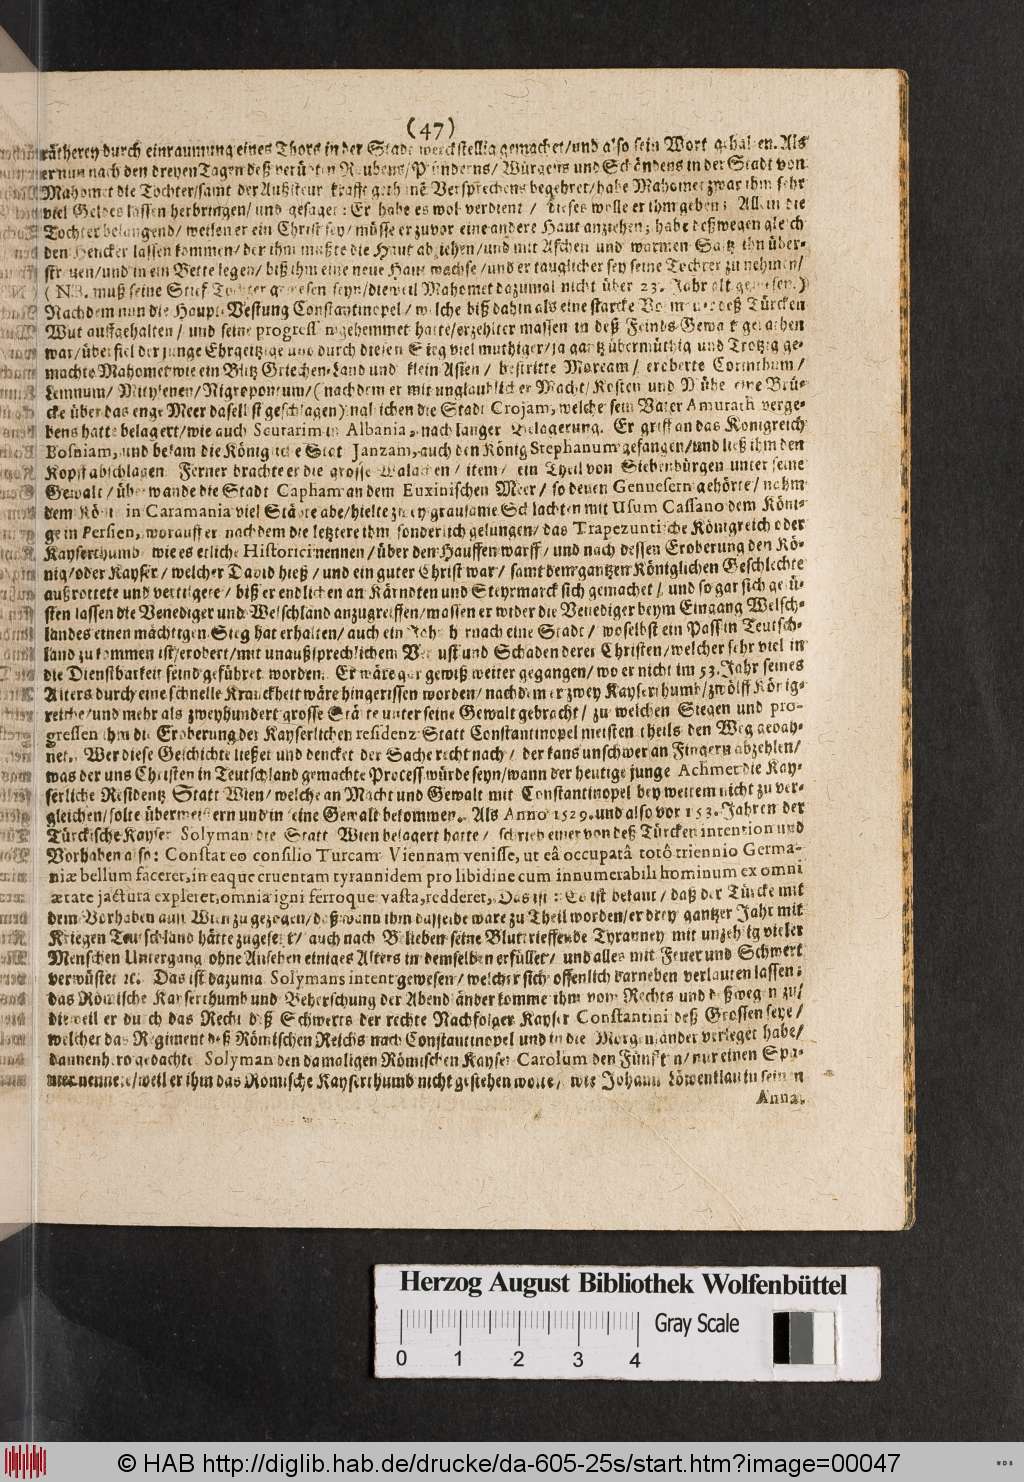 (47)
rätherey durch einraumung eines Thors in der Stadt werckstellig gemachet/und also sein Wort gehalten. Als
er nun nach den dreyen Tagen deß verübten Raubens/Plünderns/ Würgens und Schändens in der Stadt von
Mahomet die Tochter/samt der Außsteur krafft gethanē Versprechens begehret/habe Mahomet zwar ihm sehr
viel Geldes lassen herbringen/und gesaget: Er habe es wol verdient / dieses wolle er ihm geben; Allein die
Tochter belangend/ weilen er ein Christ sey/müsse er zuvor eine andere Haut anziehen; habe deßwegen gleich
den Hencker lassen kommen/der ihm mußte die Haut abziehen/und mit Aschen und warmen Saltz ihn über-
streuen/und in ein Bette legen/ biß ihm eine neue Haut wachse/und er tauglicher sey seine Tochter zu nehmen/
(NB. muß seine Stief Tochter gewesen seyn/dieweil Mahomet dazumal nicht über 23. Jahr alt gewesen.)
Nachdem nun die Haupt-Vestung Constantinopel/ welche biß dahin als eine starcke Vormauer deß Türcken
Wut auffgehalten/ und seine progress gehemmet hatte/erzehlter massen in deß Feinds Gewalt gerathen
war/überfiel der junge Ehrgeitzige und durch diesen Sieg viel muthiger/ja gantz übermüthig und Trotzig ge-
machte Mahomet wie ein Blitz Griechen-Land und klein Asien/ bestritte Moream/ eroberte Corinthum/
Lemnum/ Mitylenen/Nigropontum/(nachdem er mit unglaublicher Macht/Kosten und Mühe eine Brü-
cke über das enge Meer daselbst geschlagen) die Stadt Crojam, welche sein Vater Amurath verge-
bens hatte belagert/wie auch Scutarim in Albania, nach langer Belagerung. Er griff an das Königreich
Bosniam, und bekam die Königliche Stat Janzam, auch den König Stephanum gefangen/und ließ ihm den
Kopf abschlagen. Ferner brachte er die grosse Walachen/ item/ ein Theil von Siebenbürgen unter seine
Gewalt/ überwande die Stadt Capham an dem Euxinischen Meer/ so denen Genuesern gehörte/ nahm
dem König in Caramania viel Städte abe/hielte zwey grausame Schlachten mit Usum Cassano dem Köni-
ge in Persien, worauff er nachdem die letztere ihm sonderlich gelungen/das Trapezuntische Königreich oder
Kayserthumb wie es etliche Historici nennen/über den Hauffen warff/ und nach dessen Eroberung den Kö-
nig/oder Kayser/ welcher David hieß/ und ein guter Christ war/ samt dem gantzen Königlichen Geschlechte
außrottete und vertilgete/ biß er endlichen an Kärndten und Steyrmarck sich gemachet/ und so gar sich gelü-
sten lassen die Venediger und Welschland anzugreiffen/massen er wider die Venediger beym Eingang Welsch-
landes einen mächtigen Sieg hat erhalten/ auch ein Jahr hernach eine Stadt/ woselbst ein Paß in Teutsch-
land zu kommen ist/erobert/mit unaußsprechlichem Verlust und Schaden derer Christen/welcher sehr viel in
die Dienstbarkeit seind geführet worden. Er wäre gar gewiß weiter gegangen/wo er nicht im 53. Jahr seines
Alters durch eine schnelle Kranckheit wäre hingerissen worden/nachdem er zwey Kayserthumb/zwölff König-
reiche/und mehr als zweyhundert grosse Städte unter seine Gewalt gebracht/ zu welchen Siegen und pro-
gressen ihm die Eroberung der Kayserlichen residenz-Statt Constantinopel meisten theils den Weg gebah-
net. Wer diese Geschichte ließet und dencket der Sache recht nach/ der kans unschwer an Fingern abzehlen/
was der uns Christen in Teutschland gemachte Process würde seyn/wann der heutige junge Achmet die Kay-
serliche Residentz Statt Wien/ welche an Macht und Gewalt mit Constantinopel bey weitem nicht zu ver-
gleichen/solte übermeistern und in seine Gewalt bekommen. Als Anno 1529. und also vor 153. Jahren der
Türckische Kayser Solyman die Statt Wien belagert hatte/ schrieb einer von deß Türcken intention und
Vorhaben also: Constat eo consilio Turcam Viennam venisse, ut eâ occupatâ totô triennio Germa-
niæ bellum faceret, in eaque cruentam tyrannidem pro libidine cum innumerabili hominum ex omni
ætate jactura expleret, omnia igni ferroque vasta, redderet, Das ist: Es ist bekant/ daß der Türcke mit
dem Vorhaben auff Wien zugezogen/daß wann ihm dasselbe ware zu Theil worden/er drey gantzer Jahr mit
Kriegen Teutschland hätte zugesetzt/ auch nach Belieben seine Bluttrieffende Tyranney mit unzehlig vieler
Menschen Untergang ohne Ansehen einiges Alters in demselben erfüllet/ und alles mit Feuer und Schwert
verwüstet ꝛc. Das ist dazumal Solymans intent gewesen/ welcher sich offenlich darneben verlauten lassen;
das Römische Kayserthumb und Beherschung der Abendländer komme ihm vom Rechts und deßwegen zu/
dieweil er durch das Recht deß Schwerts der rechte Nachfolger Kayser Constantini deß Grossen seye/
welcher das Regiment deß Römischen Reichs nach Constantinopel und in die Morgenländer verleget habe/
dannenhero gedachter Solyman den damaligen Römischen Kayser Carolum den Fünfften/nur einen Spa-
nier nennete/weil er ihm das Römische Kayserthumb nicht gestehen wolte/ wie Johann Löwenklau in seinen
Anna-
Herzog August Bibliothek Wolfenbüttel
Gray Scale
0 1 2 3 4
© HAB http://diglib.hab.de/drucke/da-605-25s/start.htm?image=00047